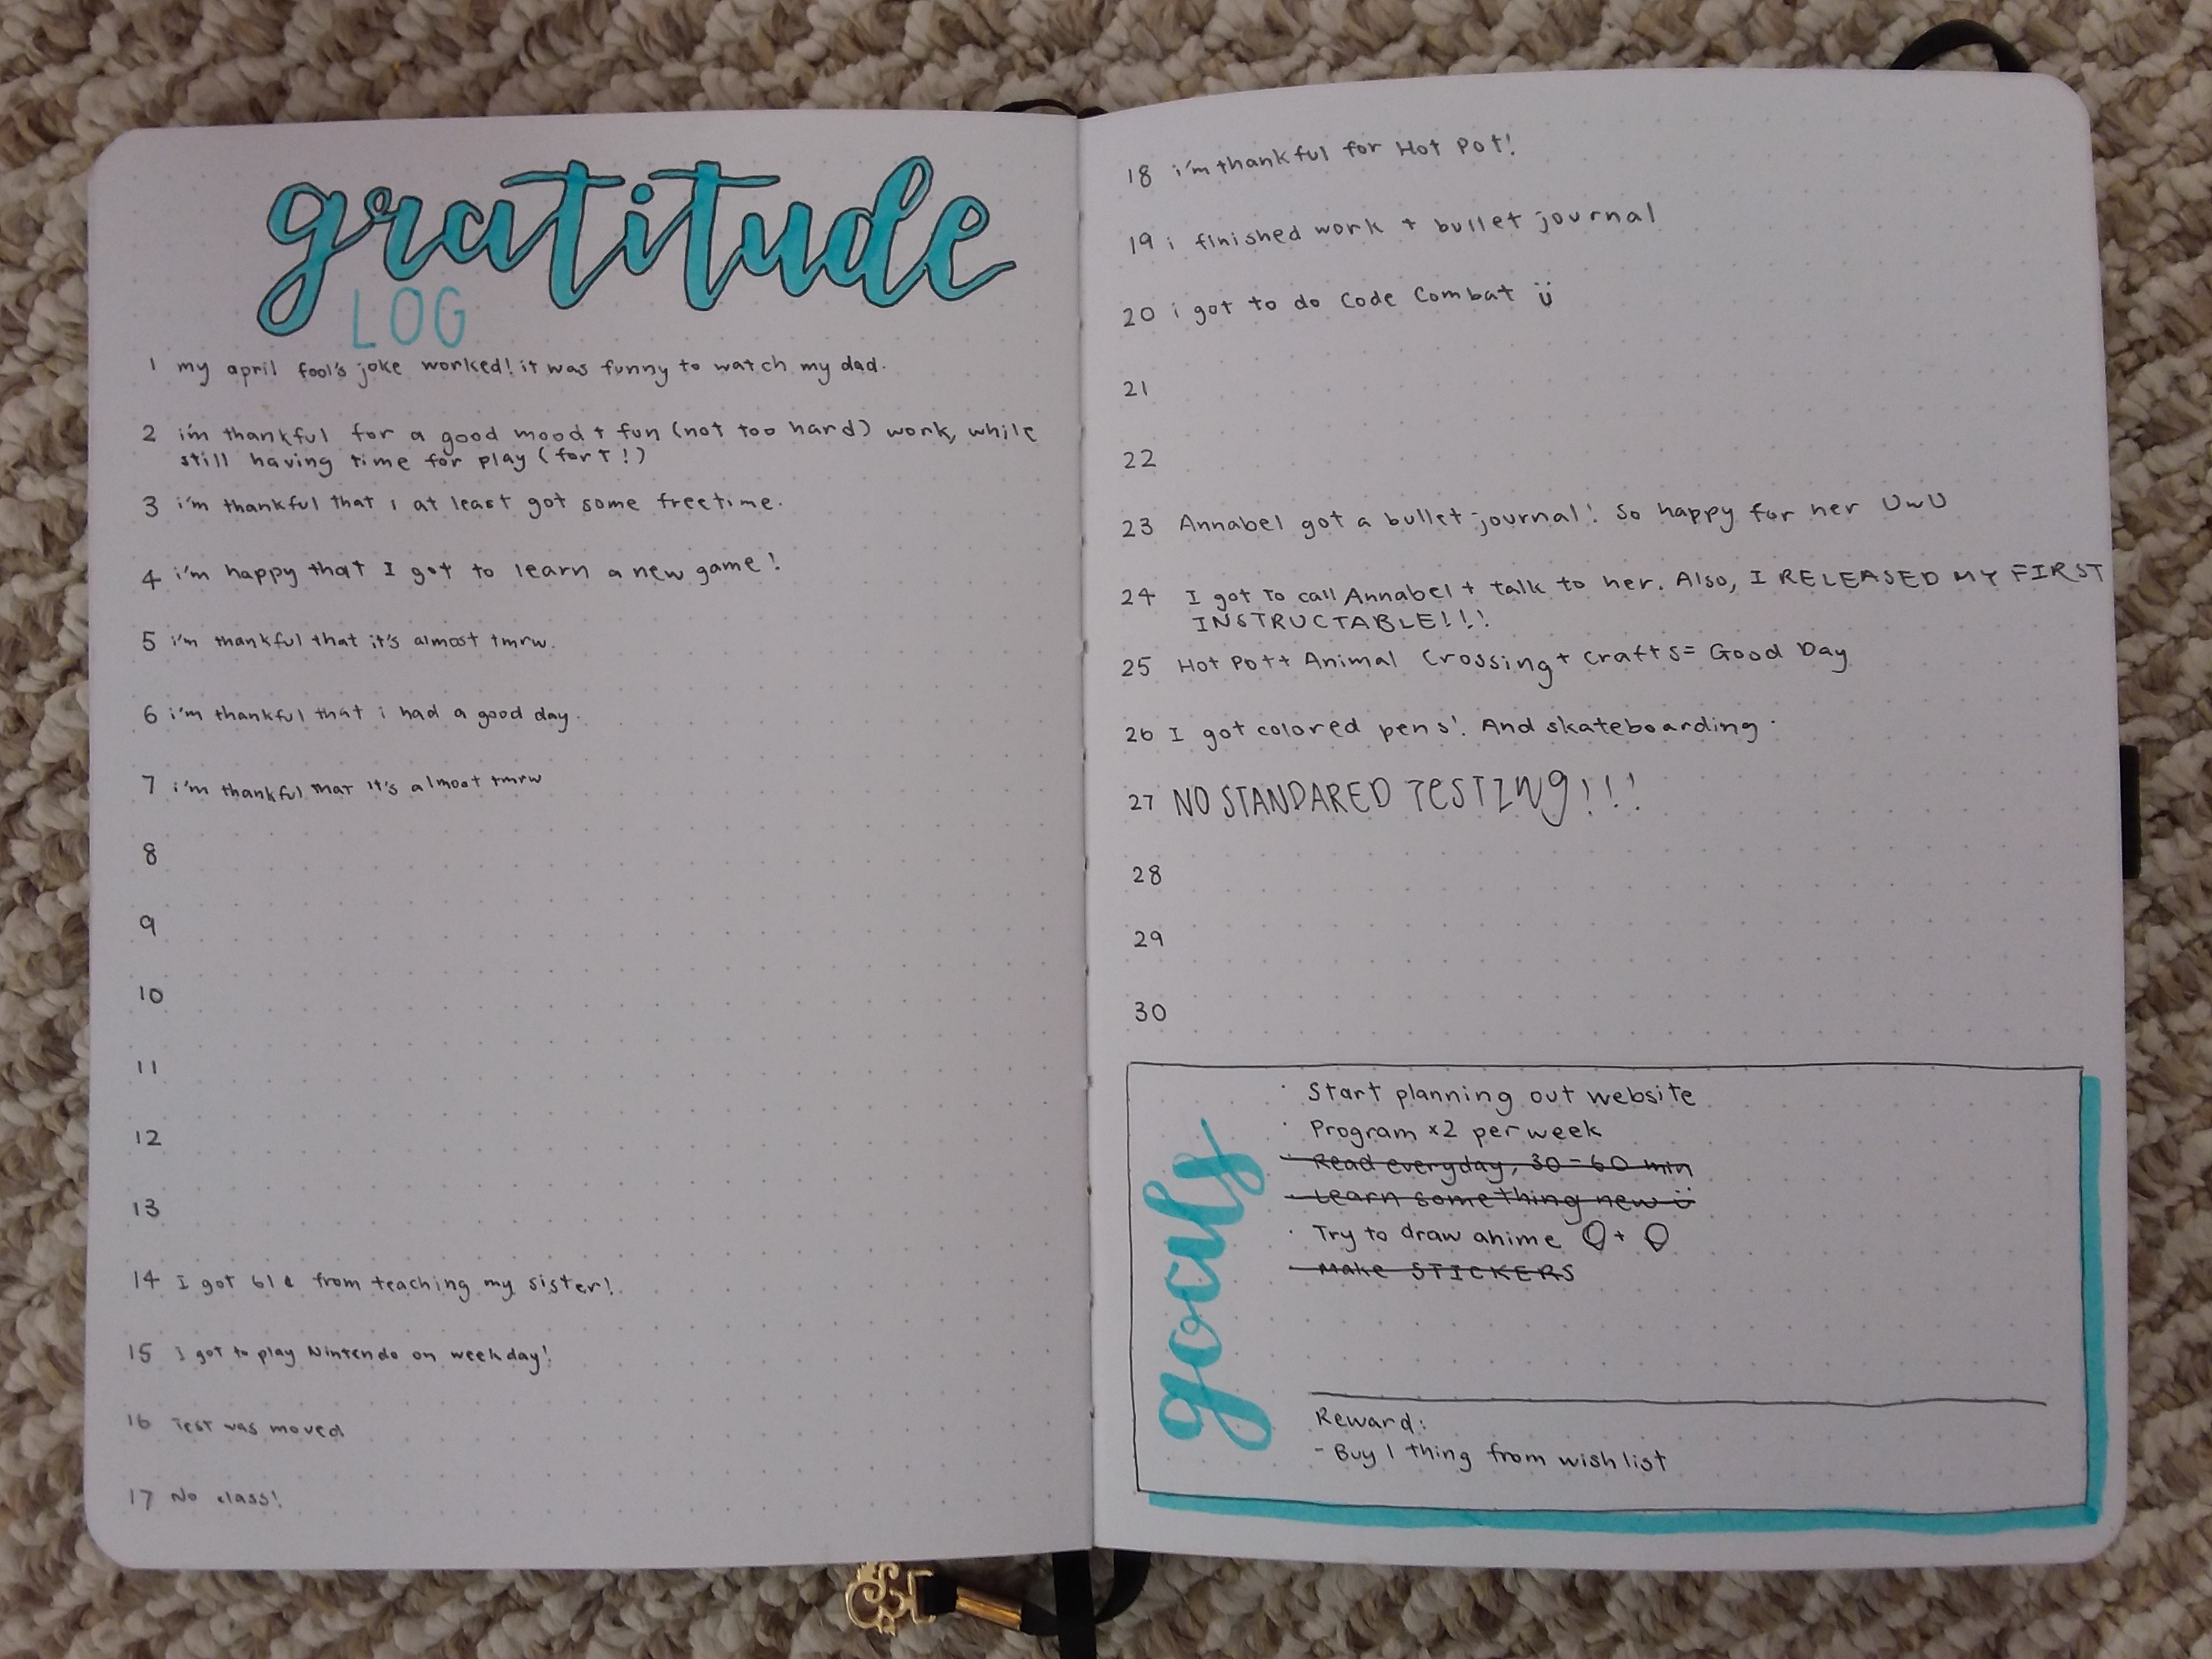 gratitude
LOG
1 my april fool's joke worked! it was funny to watch my dad.
2 i'm thankful for a good mood + fun (not too hard) work, while
still having time for play (fort!)
3 i'm thankful that i at least got some freetime.
4 i'm happy that I got to learn a new game!
5 i'm thankful that it's almost tmrw.
6 i'm thankful that i had a good day.
7 i'm thankful that it's almost tmrw
8
9
10
11
12
13
14 I got 61¢ from teaching my sister!
15 I got to play Nintendo on weekday!
16 Test was moved
17 No class!
18 i'm thankful for Hot Pot!
19 i finished work + bullet journal
20 i got to do Code Combat ü
21
22
23 Annabel got a bullet journal! So happy for her UwU
24 I got to call Annabel + talk to her. Also, I RELEASED MY FIRST
INSTRUCTABLE!!!
25 Hot Pot + Animal Crossing + crafts = Good Day
26 I got colored pens! And skateboarding.
27 NO STANDARED TESTING!!!
28
29
30
goals
· Start planning out website
· Program x2 per week
· Read everyday, 30-60 min
· Learn something new ü
· Try to draw anime +
· Make STICKERS
Reward:
- Buy 1 thing from wishlist